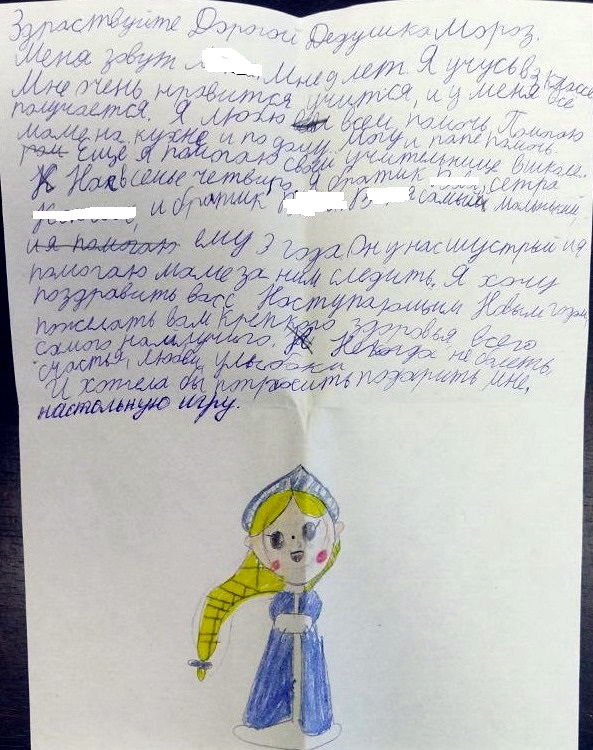 Здраствуйте Дорогой Дедушка Мороз.
Меня зовут Мне 9 лет. Я учусь в 3 классе
Мне очень нравится учится, и у меня все
получается. Я люблю всем помоч. Помогаю
маме на кухне и по дому. Могу и папе помочь.
Еще я помогаю своей учительнице в школе.
Нас в семье четверо, я братик сетра
и братик самый маленький,
и я помогаю ему 3 года Он у нас шустрый и я
помогаю маме за ним следить. Я хочу
поздравить вас с Наступающим Новым годом,
пожелать вам крепкого здоровья, всего
самого наилучшего. Некогда не болеть,
счастья, любви, улыбоки
И хотела бы попросить подарить мне,
настольную игру.